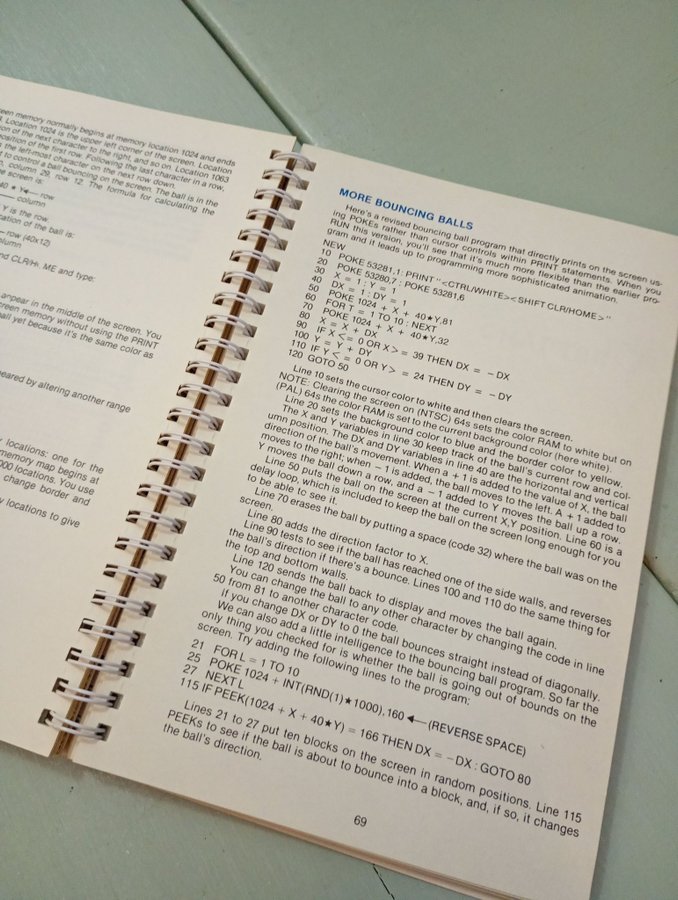 een memory normally begins at memory location 1024 and ends
Location 1024 is the upper left corner of the screen. Location
on of the next character to the right, and so on. Location 1063
position of the first row. Following the last character in a row,
the left-most character on the next row down.
t to control a ball bouncing on the screen. The ball is in the
column 29, row 12. The formula for calculating the
e screen is:
40 ★ Y◄— row
— column
Y is the row.
cation of the ball is:
—row (40x12)
olumn,
nd CLR/H. ME and type:
appear in the middle of the screen. You
creen memory without using the PRINT
all yet because it's the same color as
eared by altering another range
locations: one for the
memory map begins at
000 locations. You use
change border and
y locations to give
MORE BOUNCING BALLS
Here's a revised bouncing ball program that directly prints on the screen us-
ing POKEs rather than cursor controls within PRINT statements. When you
RUN this version, you'll see that it's much more flexible than the earlier pro-
gram and it leads up to programming more sophisticated animation.
NEW
10 POKE 53281,1: PRINT "<CTRL/WHITE><SHIFT CLR/HOME>"
20 POKE 53280,7 : POKE 53281,6
30 X = 1 : Y = 1
40 DX = 1 : DY = 1
50 POKE 1024 + X + 40★Y,81
60 FOR T = 1 TO 10 : NEXT
70 POKE 1024 + X + 40★Y,32
80 X = X + DX
90 IF X< = 0 OR X> = 39 THEN DX = – DX
100 Y = Y + DY
110 IF Y< = 0 OR Y> = 24 THEN DY = – DY
120 GOTO 50
Line 10 sets the cursor color to white and then clears the screen.
NOTE: Clearing the screen on (NTSC) 64s sets the color RAM to white but on
(PAL) 64s the color RAM is set to the current background color (here white).
Line 20 sets the background color to blue and the border color to yellow.
The X and Y variables in line 30 keep track of the ball's current row and col-
umn position. The DX and DY variables in line 40 are the horizontal and vertical
direction of the ball's movement. When a + 1 is added to the value of X, the ball
moves to the right; when – 1 is added, the ball moves to the left. A + 1 added to
Y moves the ball down a row, and a – 1 added to Y moves the ball up a row.
Line 50 puts the ball on the screen at the current X,Y position. Line 60 is a
delay loop, which is included to keep the ball on the screen long enough for you
to be able to see it.
Line 70 erases the ball by putting a space (code 32) where the ball was on the
screen.
Line 80 adds the direction factor to X.
Line 90 tests to see if the ball has reached one of the side walls, and reverses
the ball's direction if there's a bounce. Lines 100 and 110 do the same thing for
the top and bottom walls.
Line 120 sends the ball back to display and moves the ball again.
You can change the ball to any other character by changing the code in line
50 from 81 to another character code.
If you change DX or DY to 0 the ball bounces straight instead of diagonally.
We can also add a little intelligence to the bouncing ball program. So far the
only thing you checked for is whether the ball is going out of bounds on the
screen. Try adding the following lines to the program:
21 FOR L = 1 TO 10
25 POKE 1024 + INT(RND(1)★1000),160 ◄—(REVERSE SPACE)
27 NEXT L
115 IF PEEK(1024 + X + 40★Y) = 166 THEN DX = –DX : GOTO 80
Lines 21 to 27 put ten blocks on the screen in random positions. Line 115
PEEKs to see if the ball is about to bounce into a block, and, if so, it changes
the ball's direction.
69